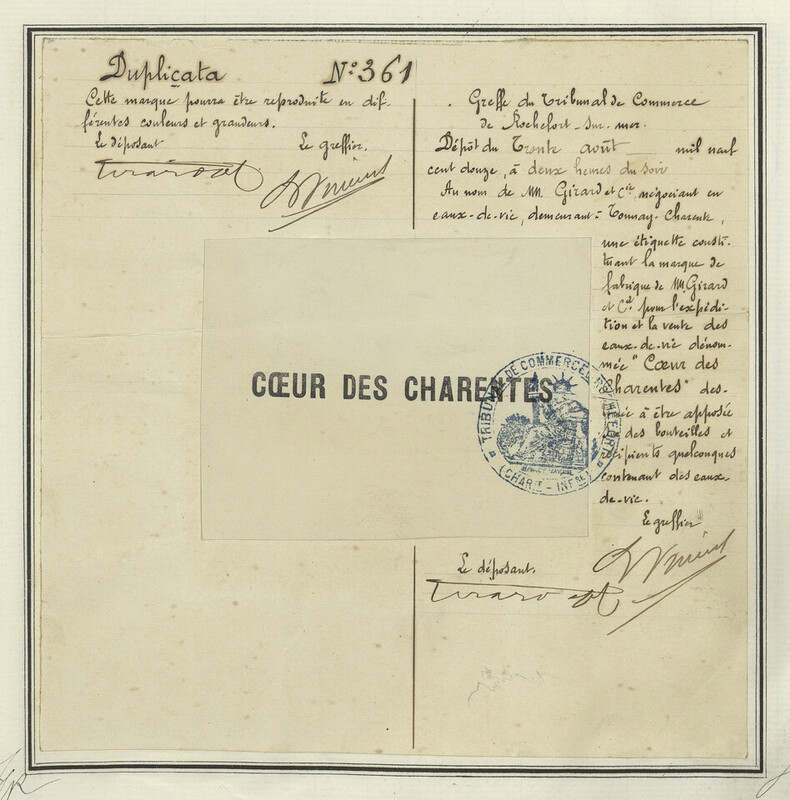 Duplicata N° 361
Cette marque pourra être reproduite en dif-
férentes couleurs et grandeurs.
Le déposant Le greffier.
Greffe du Tribunal de Commerce
de Rochefort-sur-mer.
Dépôt du Trente août mil neuf
cent douze, à deux heures du soir
Au nom de MM. Girard et Cie négociant en
eaux-de-vie, demeurant à Tonnay-Charente,
une étiquette consti-
tuant la marque de
fabrique de MM. Girard
et Cie pour l'expédi-
tion et la vente des
eaux-de-vie dénom-
mée "Cœur des
Charentes" des-
tinée à être apposée
sur des bouteilles et
récipients quelconques
contenant des eaux-
de-vie.
Le greffier
Le déposant.
CŒUR DES CHARENTES
TRIBUNAL DE COMMERCE ROCHEFORT
(CHARTE - INFRE)